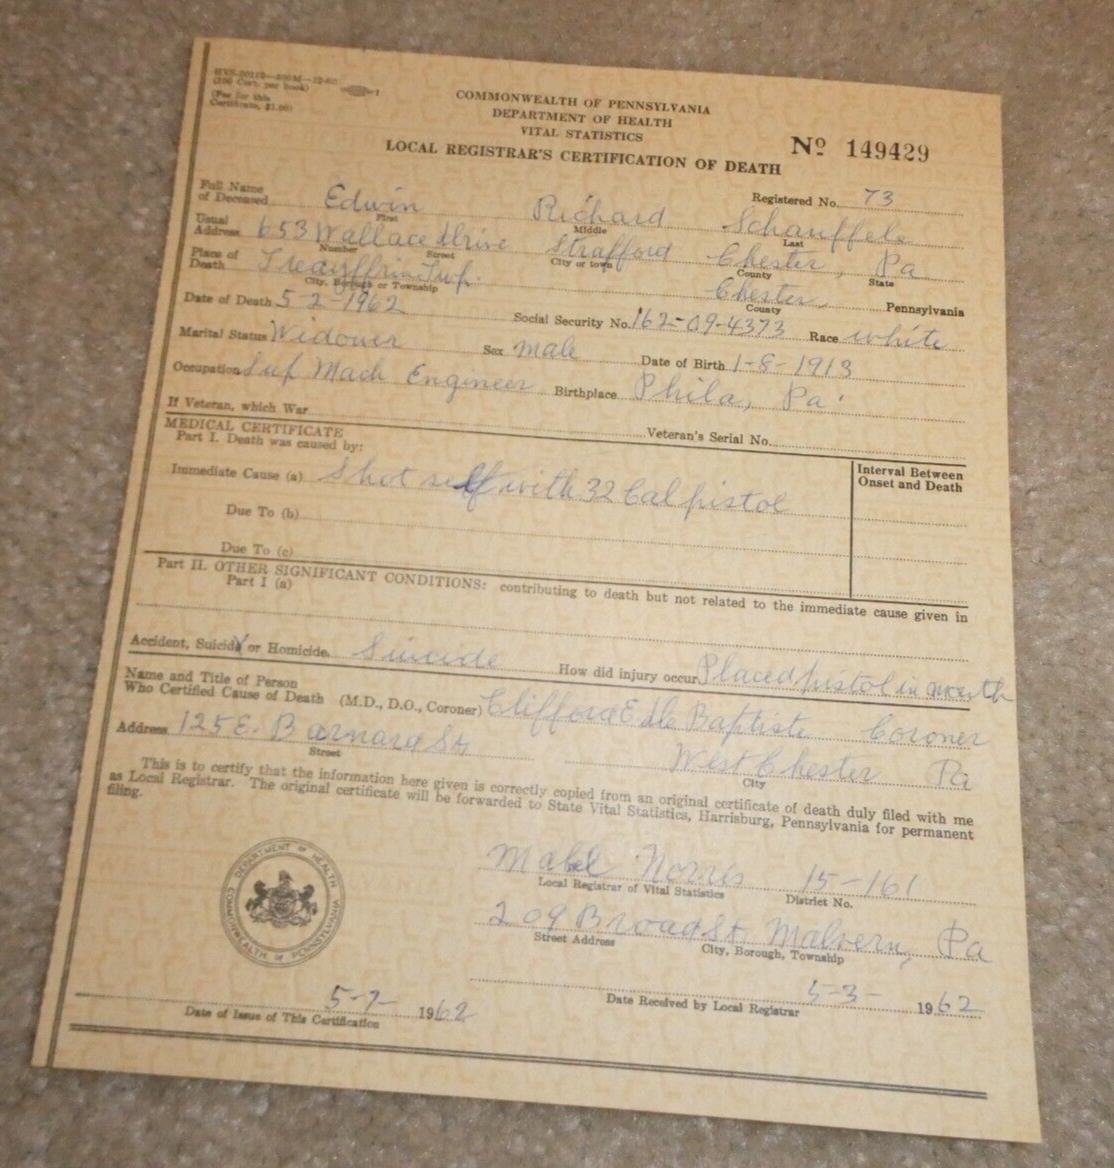 HVS-20112—200M—12-60
(100 Cert. per book)
(Fee for this
Certificate, $1.00)
COMMONWEALTH OF PENNSYLVANIA
DEPARTMENT OF HEALTH
VITAL STATISTICS
LOCAL REGISTRAR'S CERTIFICATION OF DEATH
Nº 149429
Full Name of Deceased Edwin Richard Schauffele Registered No. 73
First Middle Last
Usual Address 653 Wallace Drive Strafford Chester, Pa
Number Street City or town County State
Place of Death Treadyffrin Twp. Chester, Pennsylvania
City, Borough or Township County
Date of Death 5-2-1962 Social Security No. 162-09-4373 Race white
Marital Status Widower Sex male Date of Birth 1-8-1913
Occupation Mach Engineer Birthplace Phila, Pa
If Veteran, which War Veteran's Serial No.
MEDICAL CERTIFICATE
Part I. Death was caused by:
Interval Between
Onset and Death
Immediate Cause (a) Shot self with 32 Cal pistol
Due To (b)
Due To (c)
Part II. OTHER SIGNIFICANT CONDITIONS: contributing to death but not related to the immediate cause given in
Part I (a)
Accident, Suicide or Homicide. Suicide How did injury occur Placed pistol in mouth
Name and Title of Person
Who Certified Cause of Death (M.D., D.O., Coroner) Clifford E De Baptiste Coroner
Address 125 E. Barnard St West Chester Pa
Street City
This is to certify that the information here given is correctly copied from an original certificate of death duly filed with me
as Local Registrar. The original certificate will be forwarded to State Vital Statistics, Harrisburg, Pennsylvania for permanent
filing.
DEPARTMENT OF HEALTH
COMMONWEALTH OF PENNSYLVANIA
Mabel Norris 15-161
Local Registrar of Vital Statistics District No.
209 Broad St. Malvern, Pa
Street Address City, Borough, Township
5-7- 1962 5-3- 1962
Date of Issue of This Certification Date Received by Local Registrar